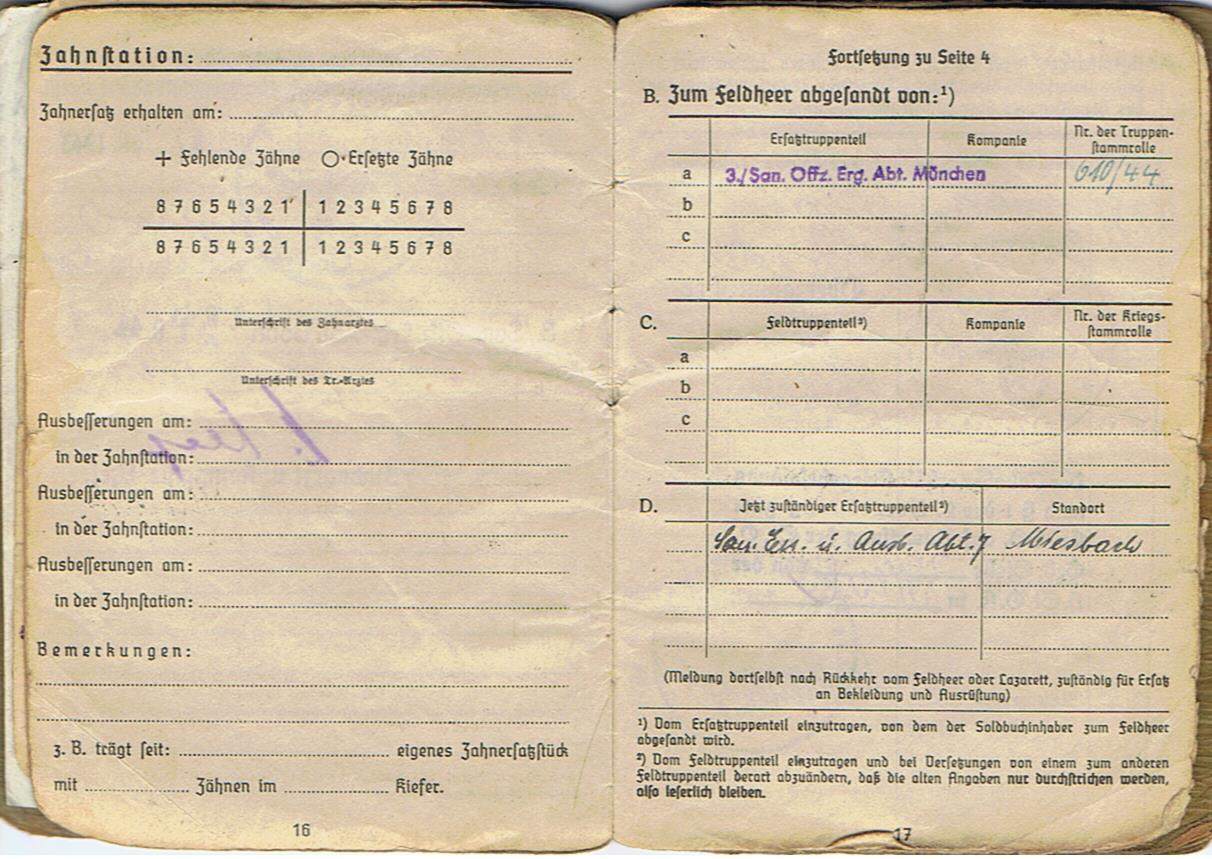 Zahnstation:
Zahnersatz erhalten am:
+ Fehlende Zähne O Ersetzte Zähne
8 7 6 5 4 3 2 1 1 2 3 4 5 6 7 8
8 7 6 5 4 3 2 1 1 2 3 4 5 6 7 8
Unterschrift des Zahnarztes
Unterschrift des Tr.-Arztes
Ausbesserungen am:
in der Zahnstation:
Ausbesserungen am:
in der Zahnstation:
Ausbesserungen am:
in der Zahnstation:
Bemerkungen:
z. B. trägt seit: eigenes Zahnersatzstück
mit Zähnen im Kiefer.
16
Fortsetzung zu Seite 4
B. Zum Feldheer abgesandt von:¹)
Ersatztruppenteil Kompanie Nr. der Truppen-
stammrolle
a 3./San. Offz. Erg. Abt. München 610/44
b
c
C. Feldtruppenteil²) Kompanie Nr. der Kriegs-
stammrolle
a
b
c
D. Jetzt zuständiger Ersatztruppenteil²) Standort
San. Ers. u. Ausb. Abt. 7 Miesbach
(Meldung dortselbst nach Rückkehr vom Feldheer oder Lazarett, zuständig für Ersatz
an Bekleidung und Ausrüstung)
¹) Vom Ersatztruppenteil einzutragen, von dem der Soldbuchinhaber zum Feldheer
abgesandt wird.
²) Vom Feldtruppenteil einzutragen und bei Versetzungen von einem zum anderen
Feldtruppenteil derart abzuändern, daß die alten Angaben nur durchstrichen werden,
also leserlich bleiben.
17